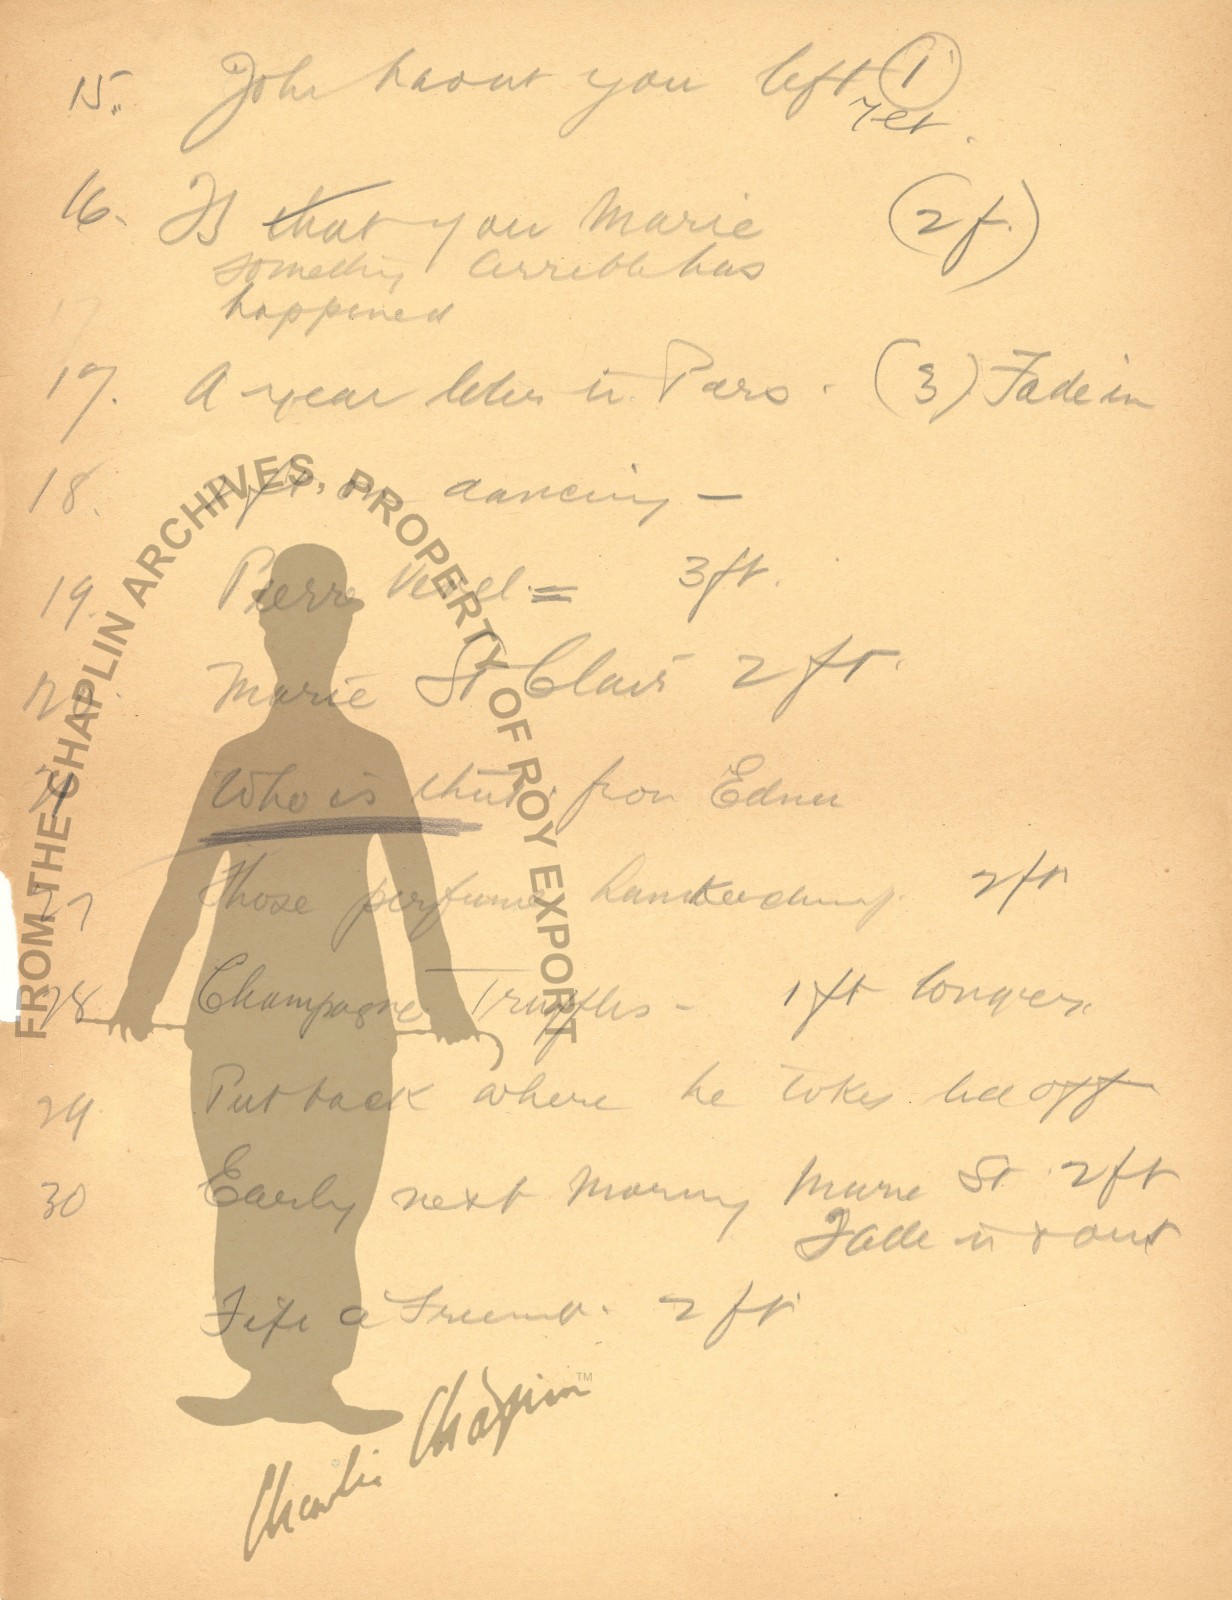 15. John havent you left 1
yet.
16. Is that you Marie (2f.)
something terrible has
happened
17
17. A year later in Paris. (3) Fade in
18. dancing —
19. Pierre Revel = 3ft.
Marie St Clair 2 ft.
Who is that from Edna
27 Those perfume 2ft
28 Champagne Truffles - 1ft longer.
29 Put back where he takes lid off
30 Early next morning Marie St 2ft
Fade in & out
Fifi a Friend. 2 ft
FROM THE CHAPLIN ARCHIVES, PROPERTY OF ROY EXPORT
Charlie Chaplin TM